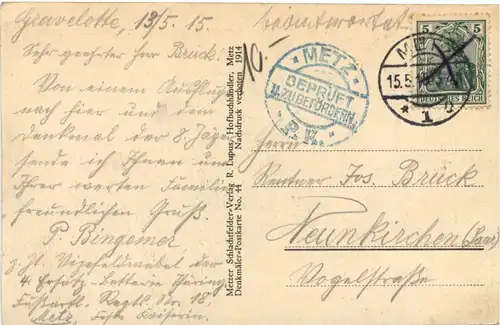 Gravelotte, 13/5. 15.
beantwortet
Sehr geehrter Herr Bruck!
Von einem Ausflug
nach hier und dem
Denkmal der 8. Jäger
sende ich Ihnen und
Ihrer werten Familie
freundlichen Gruß.
P. Bingemer
z. Zt. Vizefeldwebel der
4. Ersatz-Batterie Thüring.
Fußart. Regts. Nr. 18,
Metz, Feste Kaiserin.
10.-
Metzer Schlachtfelder-Verlag R. Lupus, Hofbuchhändler, Metz
Denkmäler-Postkarte No. 44 Nachdruck verboten 1914
METZ
GEPRÜFT
U. ZU BEFÖRDERN.
P. K.
5 5
DEUTSCHES REICH
15.5.
* 1
Herrn
Rentner Jos. Bruck
Neunkirchen (Saar)
Vogelstraße